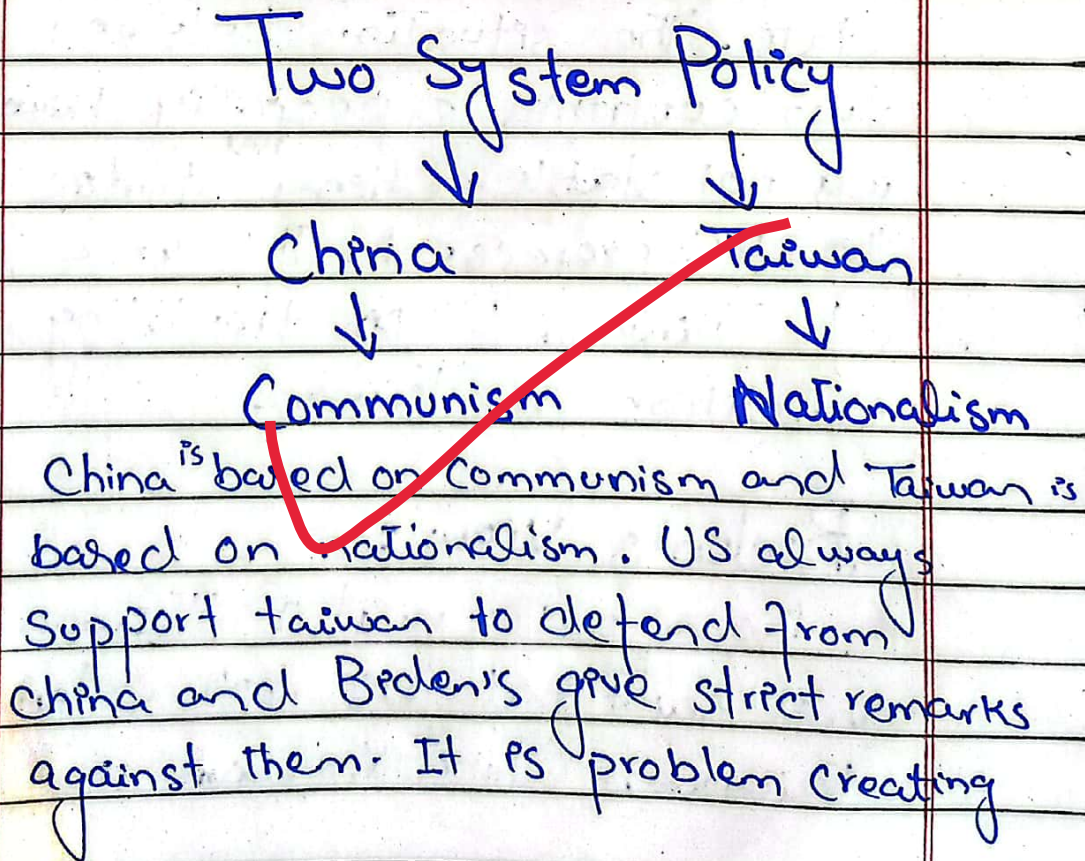 Two System Policy
China Taiwan
Communism Nationalism
China is based on Communism and Taiwan is
based on nationalism. US always
support taiwan to defend from
china and Beden's give strict remarks
against them. It is problem creating